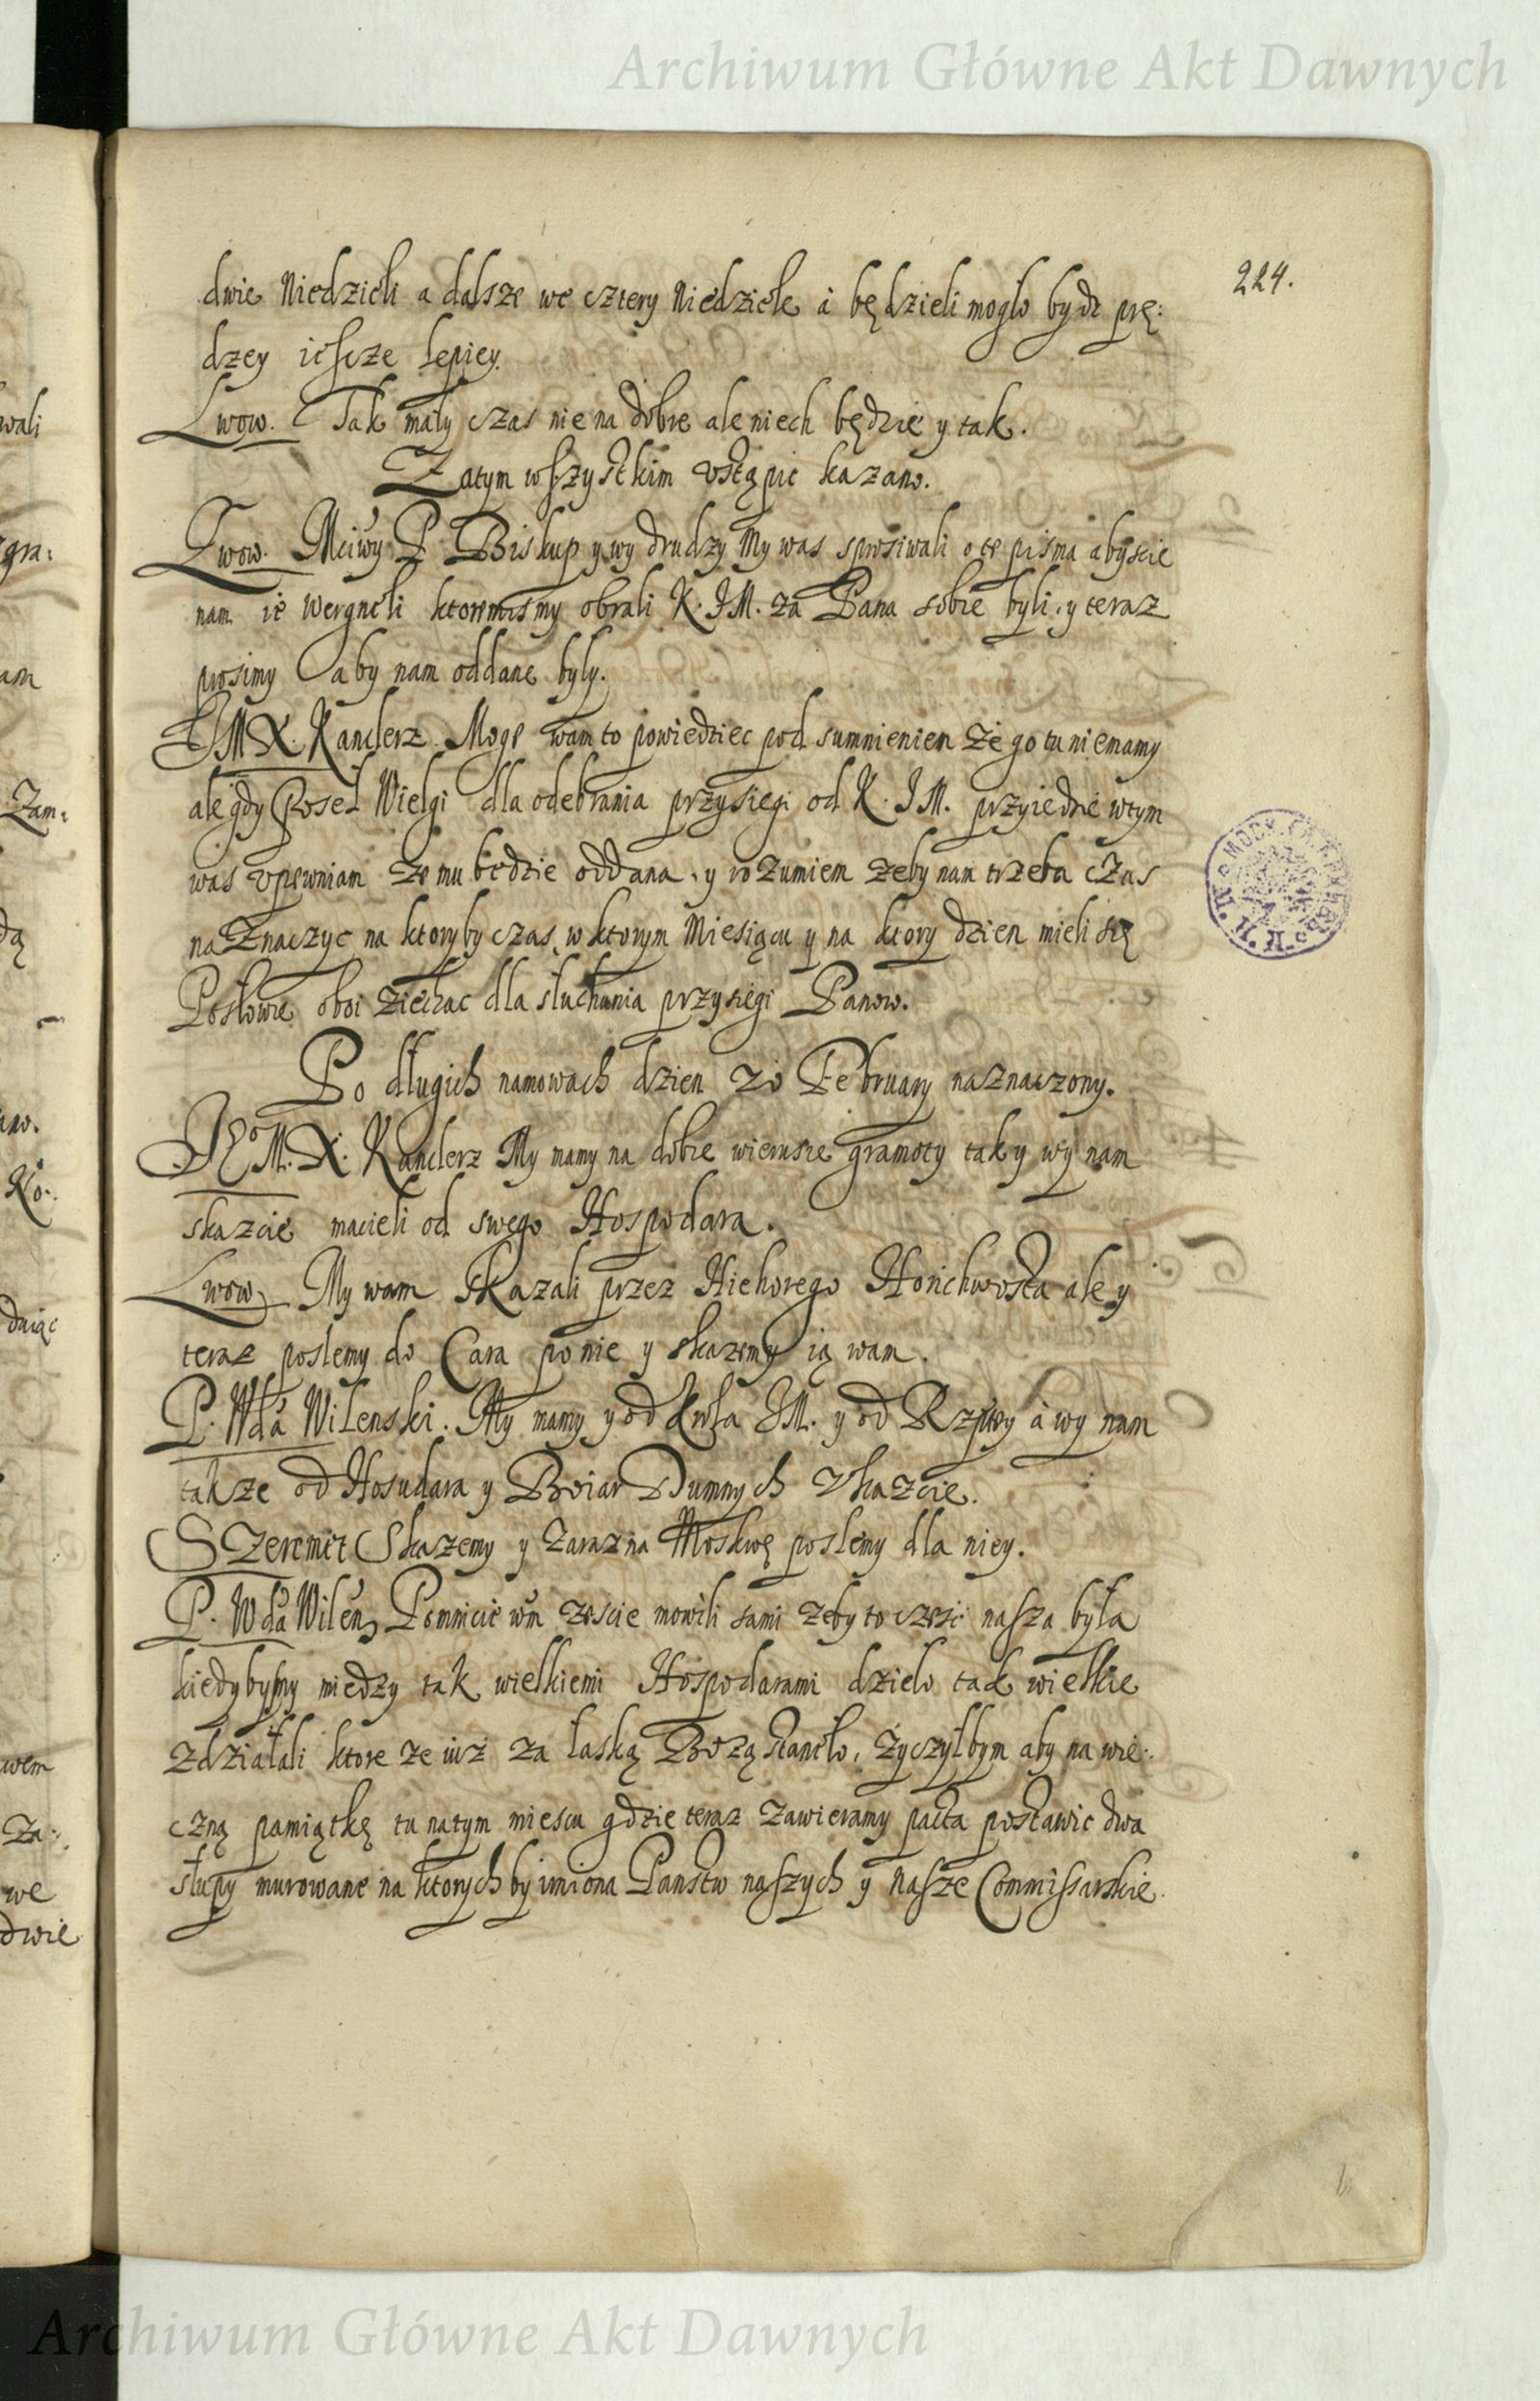 Archiwum Główne Akt Dawnych
224.
dwie Niedzieli a dalsze we cztery Niedziele á będzieli mogło bydz prę:
dzey ieszcze lepiey.
Lwow. Tak mały czas nie na dobre ale niech będzie y tak.
Zatym wszystkim ustąpic kazano.
Lwow. Mciwy P. Biskup y wy drudzy My was prosiwali o te pisma abyscie
nam ie wergneli ktoremismy obrali K. JM. za Pana sobie byli. y teraz
prosimy aby nam oddane były.
JMX. Kanclerz. Moge wam to powiedziec pod sumnieniem że go tu niemamy
ale gdy Poseł Wielgi dla odebrania przysiegi od K. JM. przyiedzie wtym
was upewniam że mu bedzie oddana. y rozumiem żeby nam trzeba czas
naznaczyc na ktoryby czas, w ktorym Miesiącu y na ktory dzien mieli się
Posłowie oboi ziechac dla słuchania przysiegi Panow.
Po długich namowach dzien 20 February naznaczony.
JEo M. X. Kanclerz My mamy na dobre wierusze gramoty tak y wy nam
skazcie macieli od swego Hospodara.
Lwow My wam skazali przez Hiehorego Horichwosta ale y
teraz poslemy do Cara po nie y skazemy ią wam.
P. Wda Wilenski. My mamy y od Krla JM. y od Rzptey á wy nam
takze od Hosudara y Boiar Dumnych ukazcie.
Szeremet Skazemy y zaraz na Moskwę poslemy dla niey.
P. Wda Wilen Pomnicie wm zescie mowili sami zeby to czesc nasza była
kiedybysmy miedzy tak wielkiemi Hospodarami dzieło tak wielkie
zdziałali ktore ze iuż za łaską Bożą staneło, życzyłbym aby na wie:
czną pamiątkę tu na tym miescu gdzie teraz zawieramy pacta postawic dwa
słupy murowane na ktorych by imiona Panstw naszych y nasze Commissarskie
Archiwum Główne Akt Dawnych